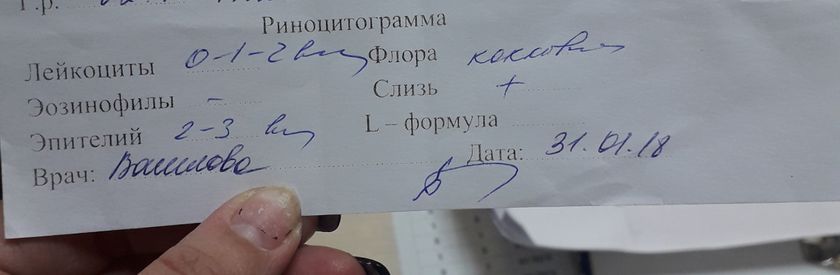 Г.р.
Риноцитограмма
Лейкоциты 0-1-2 в п/з Флора кокковая
Эозинофилы - Слизь +
Эпителий 2-3 в п/з L – формула
Врач: Дата: 31.01.18